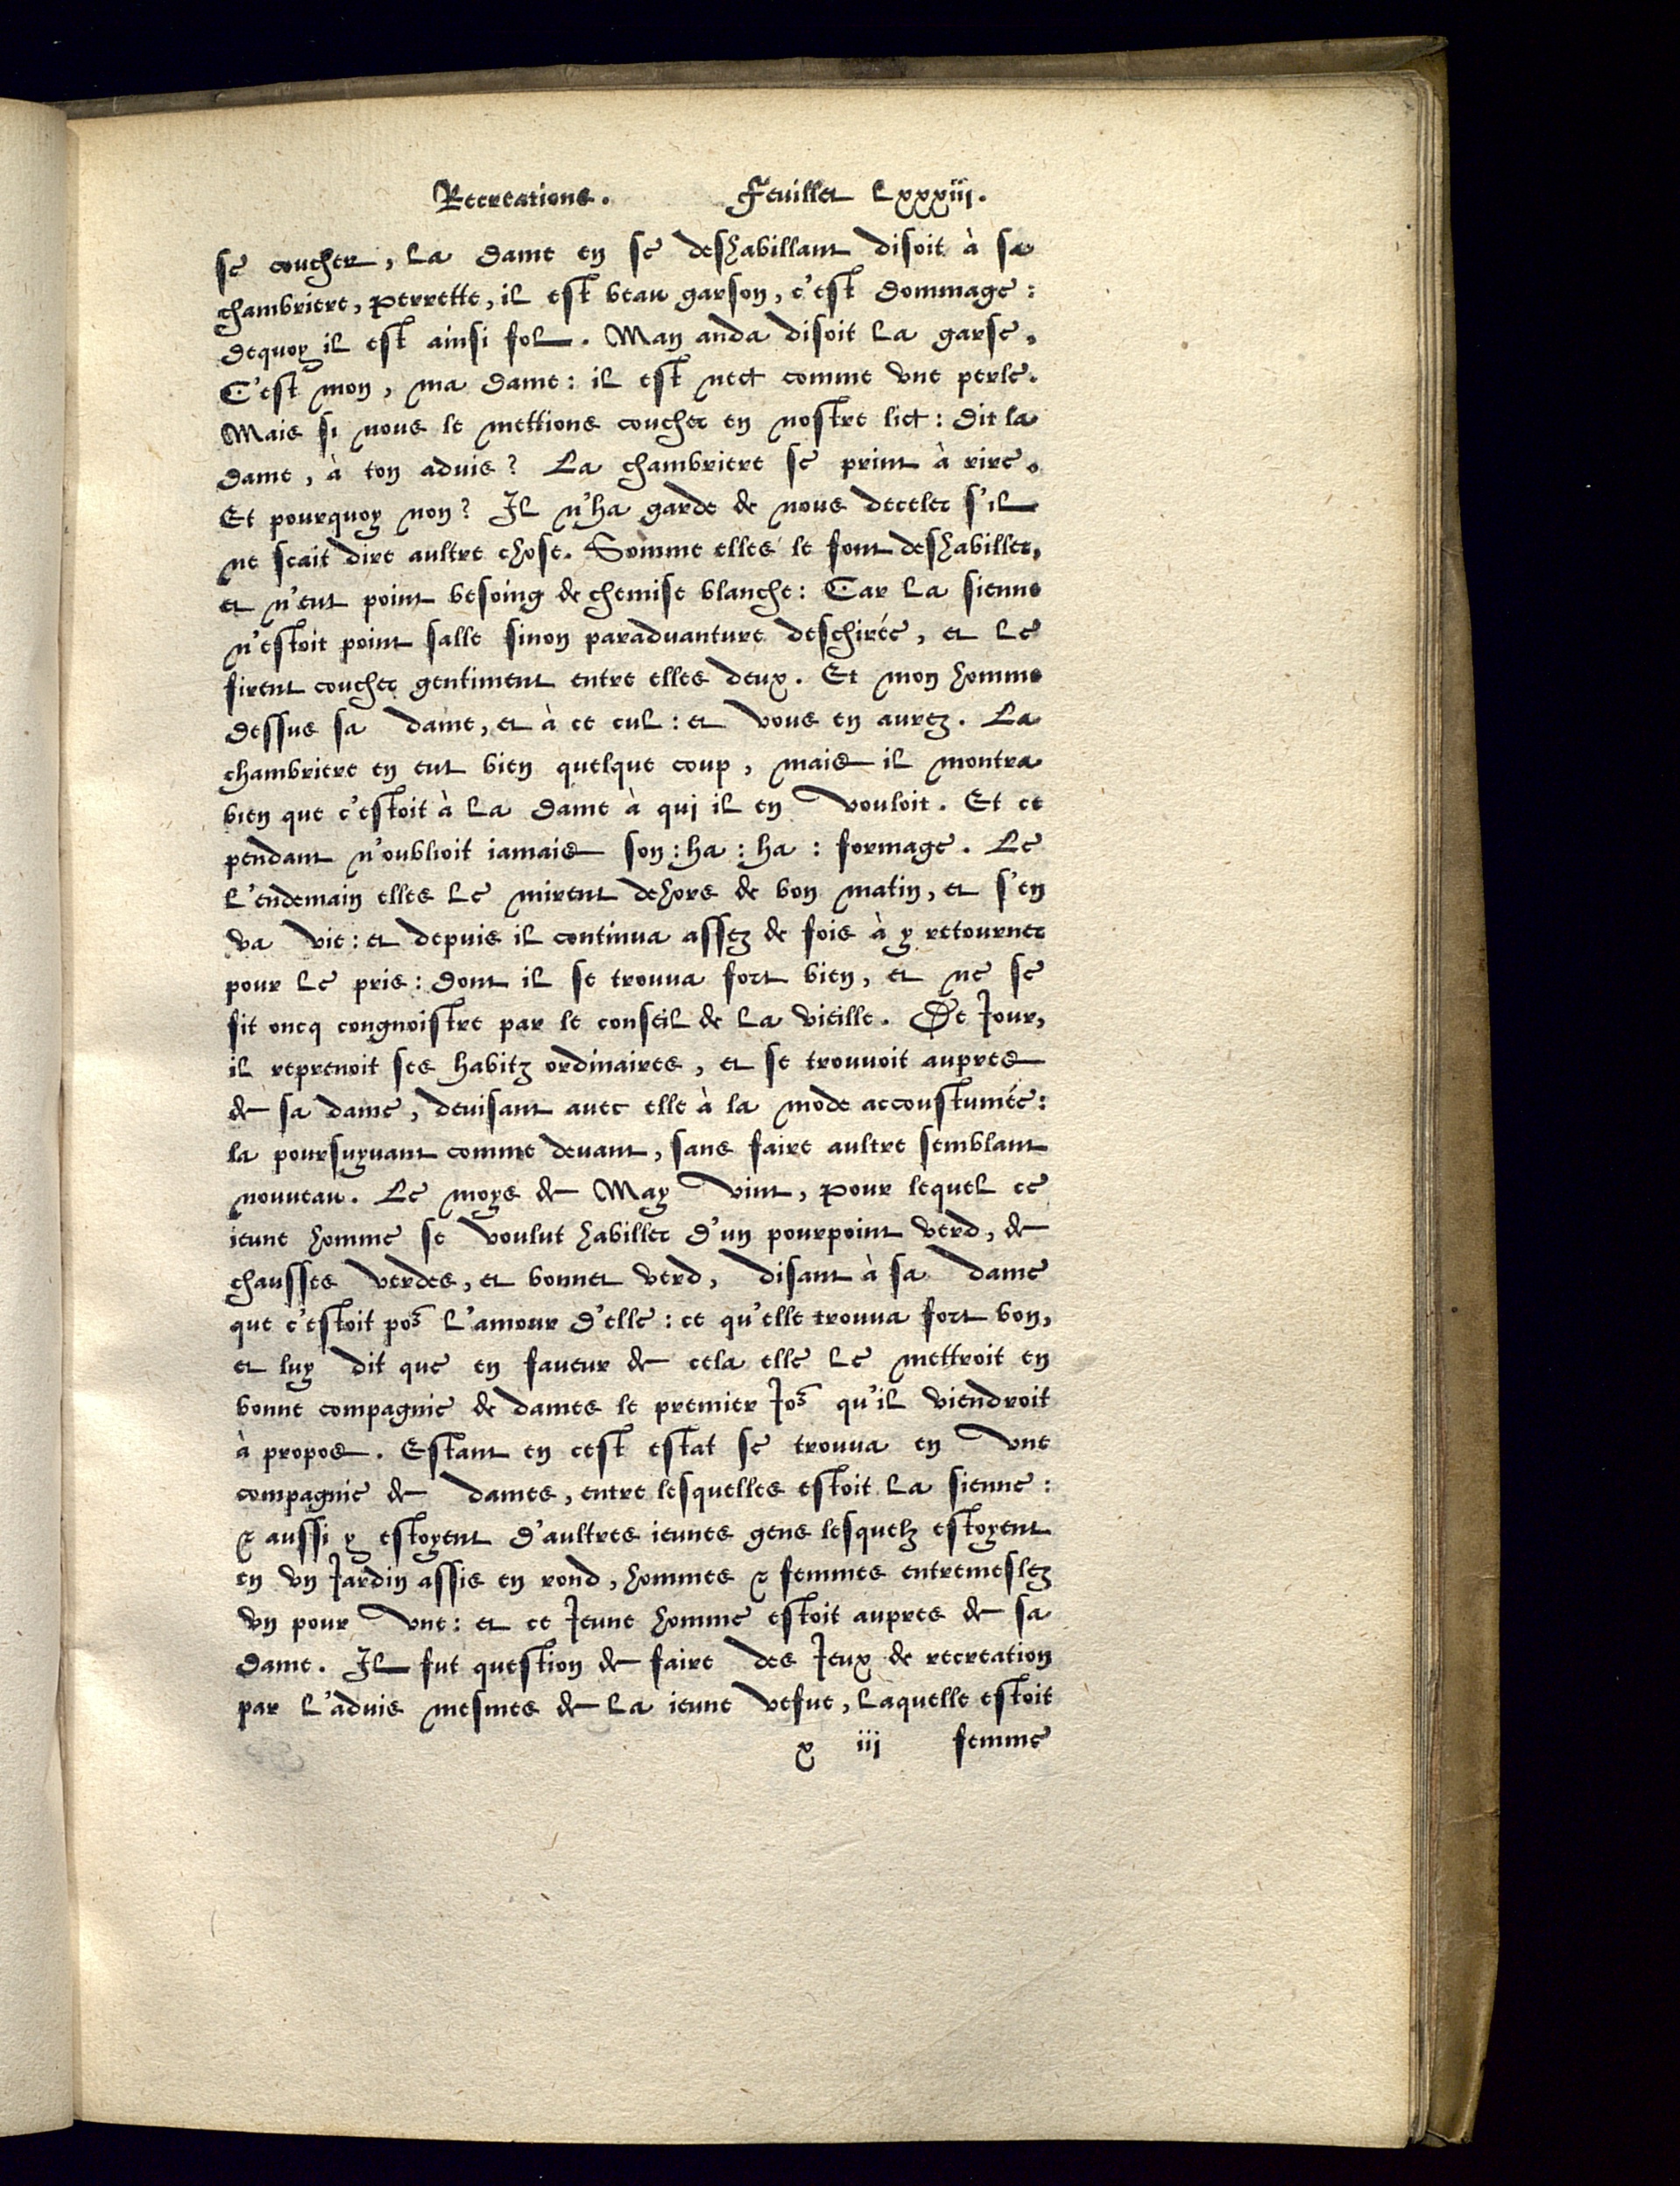 Recreations. Feuillet lxxxiij.
se coucher, la dame en se deshabillant disoit à sa
chambriere, Perrette, il est beau garson, c'est dommage:
dequoy il est ainsi fol. Man anda disoit la garse,
C'est mon, ma dame: il est nect comme vne perle.
Mais si nous le mettions coucher en nostre lict: dit la
dame, à ton aduis? La chambriere se print à rire.
Et pourquoy non? Il n'ha garde de nous deceler s'il
ne scait dire aultre chose. Somme elles le font deshabiller,
et n'eut point besoing de chemise blanche: Car la sienne
n'estoit point salle sinon paraduanture deschirée, et le
firent coucher gentiment entre elles deux. Et mon homme
dessus sa dame, et à ce cul: et vous en aurez. La
chambriere en eut bien quelque coup, mais il montra
bien que c'estoit à la dame à qui il en vouloit. Et ce
pendant n'oublioit iamais son: ha: ha: formage. Le
l'endemain elles le mirent dehors de bon matin, et s'en
va vie: et depuis il continua assez de fois à y retourner
pour le pris: dont il se trouua fort bien, et ne se
fit oncq congnoistre par le conseil de la vieille. De Jour,
il reprenoit ses habitz ordinaires, et se trouuoit aupres
de sa dame, deuisant auec elle à la mode accoustumée:
la poursuyuant comme deuant, sans faire aultre semblant
nouueau. Le moys de May vint, Pour lequel ce
ieune homme se voulut habiller d'un pourpoint verd, de
chausses verdes, et bonnet verd, disant à sa dame
que c'estoit poᷣ l'amour d'elle: ce qu'elle trouua fort bon,
et luy dit que en faueur de cela elle le mettroit en
bonne compagnie de dames le premier Joᷣ qu'il viendroit
à propos. Estant en cest estat se trouua en vne
compagnie de dames, entre lesquelles estoit la sienne:
& aussi y estoyent d'aultres ieunes gens lesquelz estoyent
en vn Jardin assis en rond, hommes & femmes entremeslez
vn pour vne: et ce Jeune homme estoit aupres de sa
dame. Il fut question de faire des Jeux de recreation
par l'aduis mesmes de la ieune vefue, laquelle estoit
x iij femme